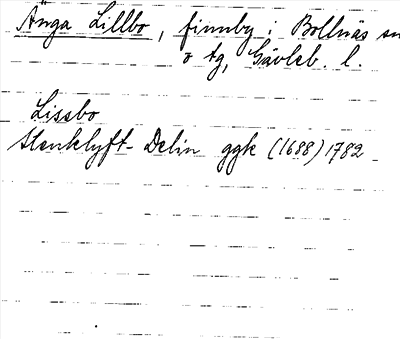 Änga Lillbo, finnby i Bollnäs sn
o tg, Gävleb. l.
Lissbo
Stenklyft-Delin ggk (1688) 1782